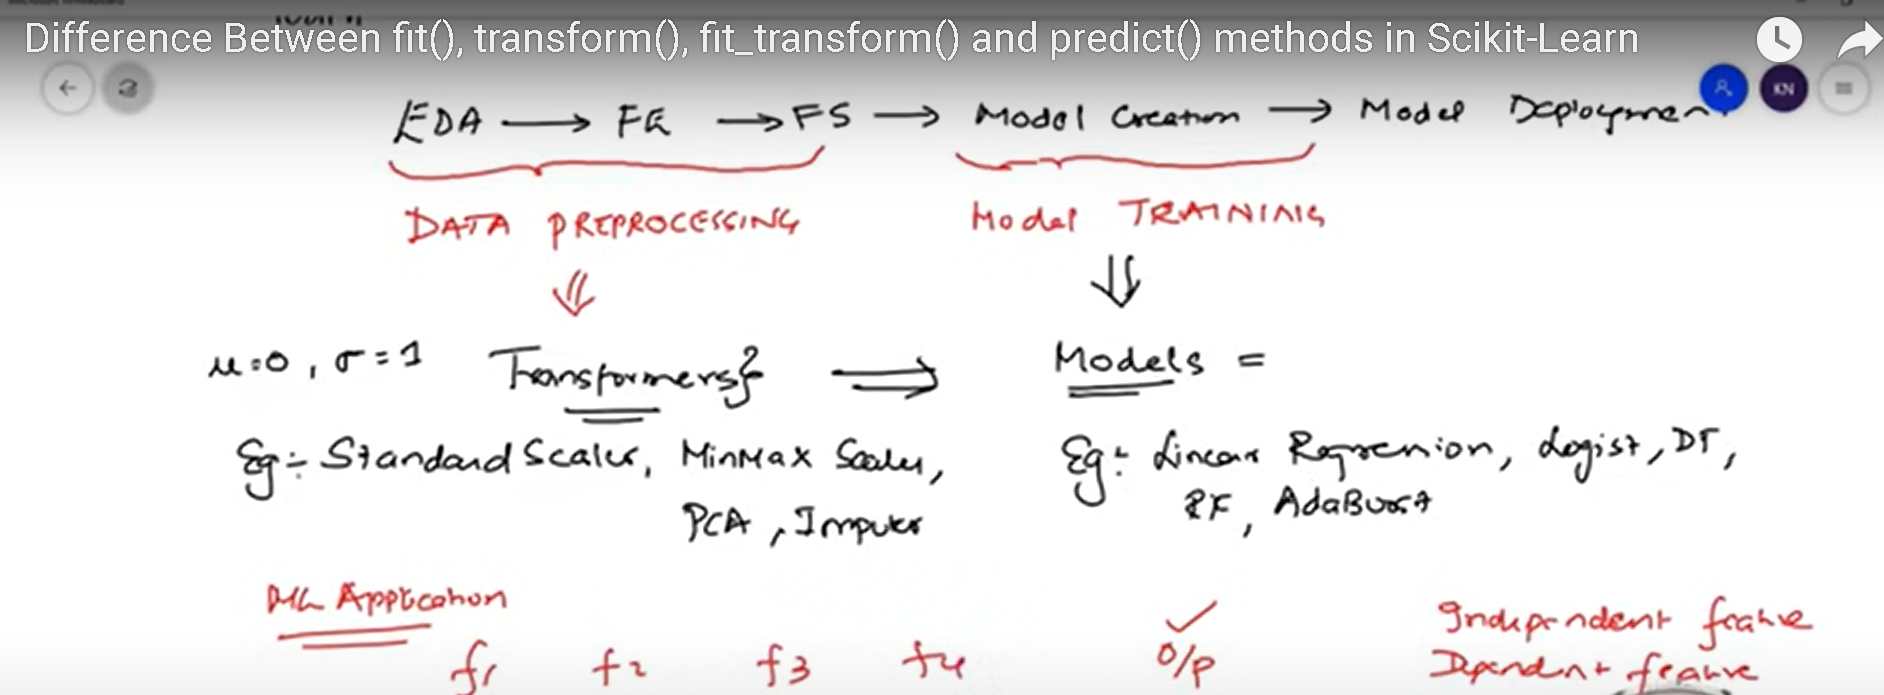 Difference Between fit(), transform(), fit_transform() and predict() methods in Scikit-Learn
KN
EDA → FE → FS → Model Creation → Model Deploymen
DATA PREPROCESSING Model TRAINING
μ=0, σ=1 Transformers} ⇒ Models =
Eg:- Standard Scaler, MinMax Scaler, Eg:- Linear Regression, Logist, DT,
PCA, Imputer RF, AdaBoost
ML Application
f1 f2 f3 f4 O/p Independent feature
Dependent feature